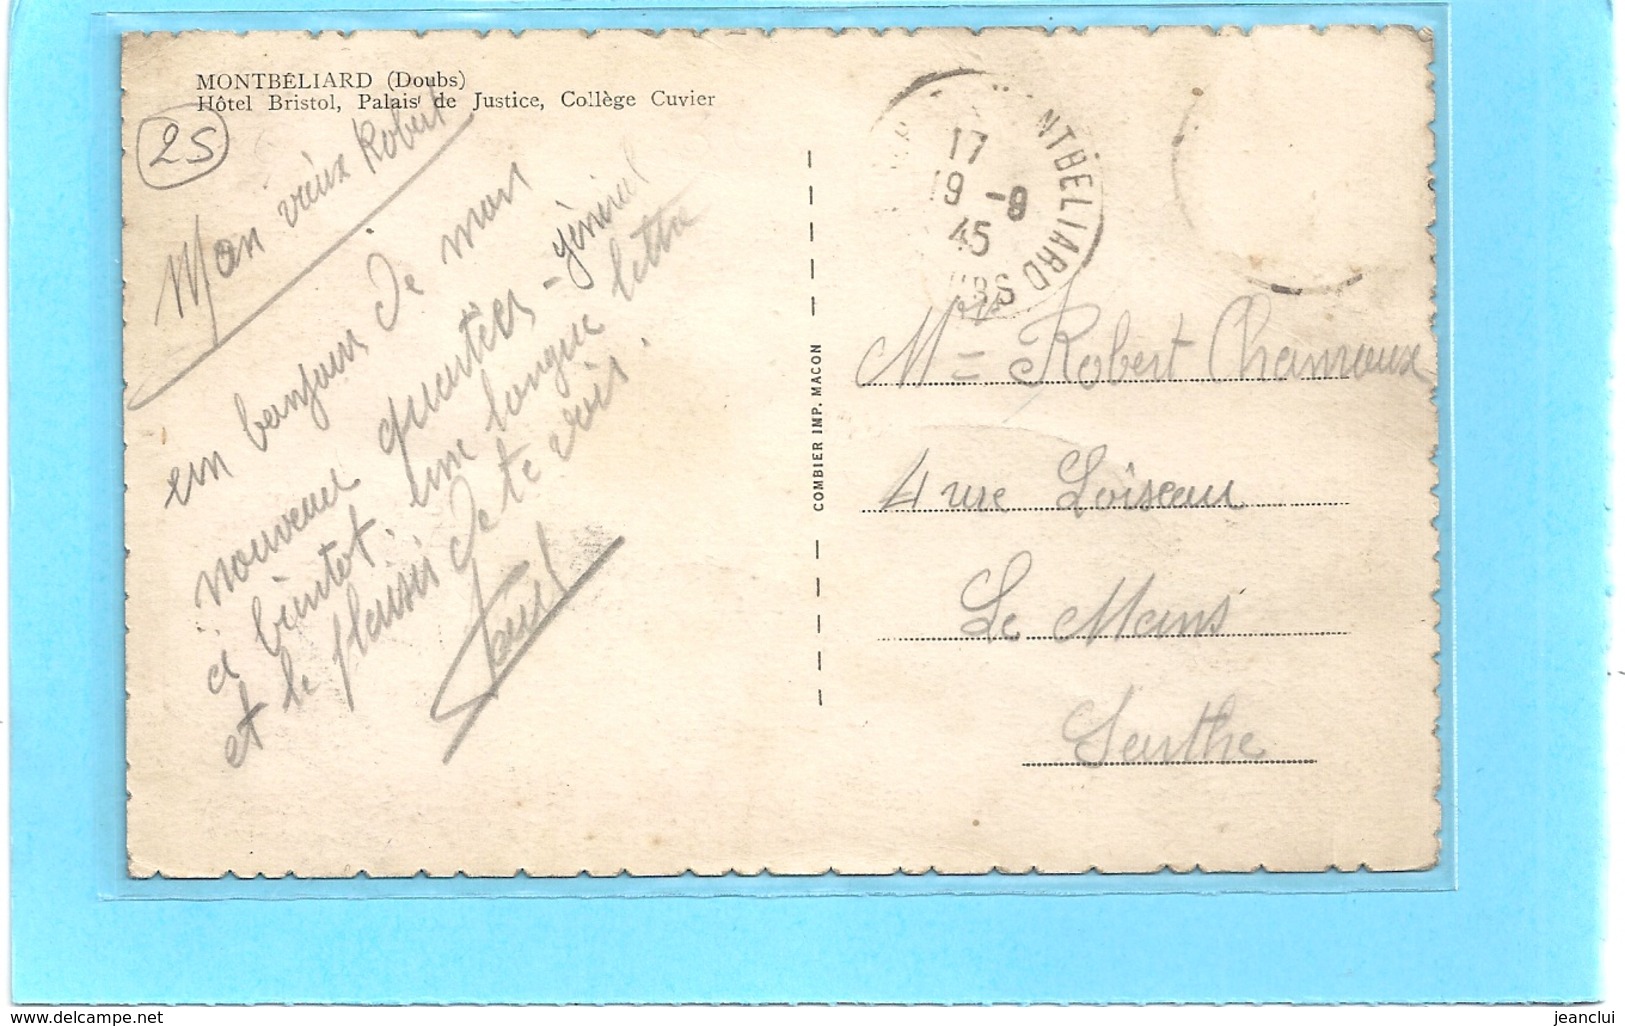 MONTBÉLIARD (Doubs)
Hôtel Bristol, Palais de Justice, Collège Cuvier
25
Mon vieux Robert
un bonjour de mon
nouveau quartier-général
à bientot, une longue lettre
et le plaisir de te voir.
Paul
COMBIER IMP. MACON
17
19 -9
45
MONTBÉLIARD
DOUBS
Mr = Robert Chamoux
4 rue Loiseau
Le Mans
Sarthe
www.delcampe.net
jeanclui